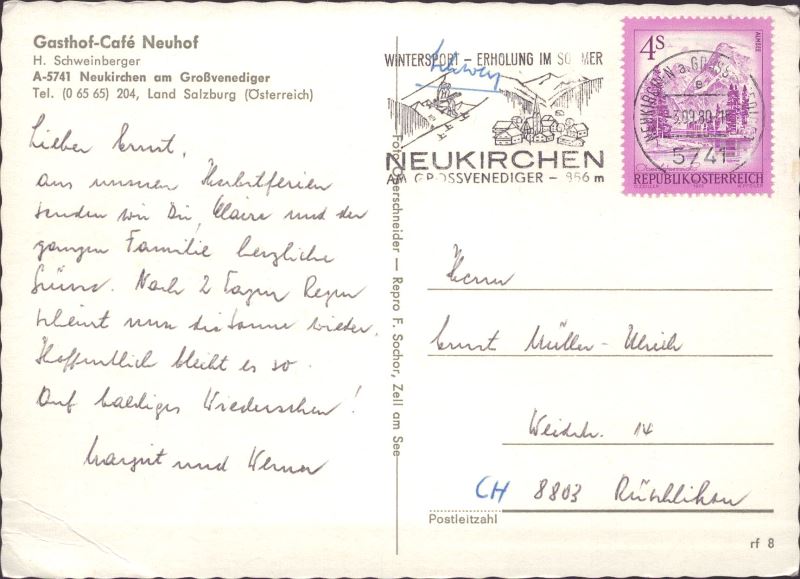 Gasthof-Café Neuhof
H. Schweinberger
A-5741 Neukirchen am Großvenediger
Tel. (0 65 65) 204, Land Salzburg (Österreich)
Lieber Ernst,
aus unseren Herbstferien
senden wir Dir, Claire und der
ganzen Familie herzliche
Grüsse. Nach 2 Tagen Regen
scheint nun die Sonne wieder.
Hoffentlich bleibt es so.
Auf baldiges Wiedersehen!
Margrit und Werner
Foto Oberschneider — Repro F. Sochor, Zell am See
WINTERSPORT – ERHOLUNG IM SOMMER
Schweiz
NEUKIRCHEN
AM GROSSVENEDIGER – 856 m
4 S
ALMSEE
REPUBLIK ÖSTERREICH
NEUKIRCHEN a. GROSSVENEDIGER
e
.09.80-1
5741
Herrn
Ernst Müller-Ulrich
Weidstr. 14
CH 8803 Rüschlikon
Postleitzahl
rf 8